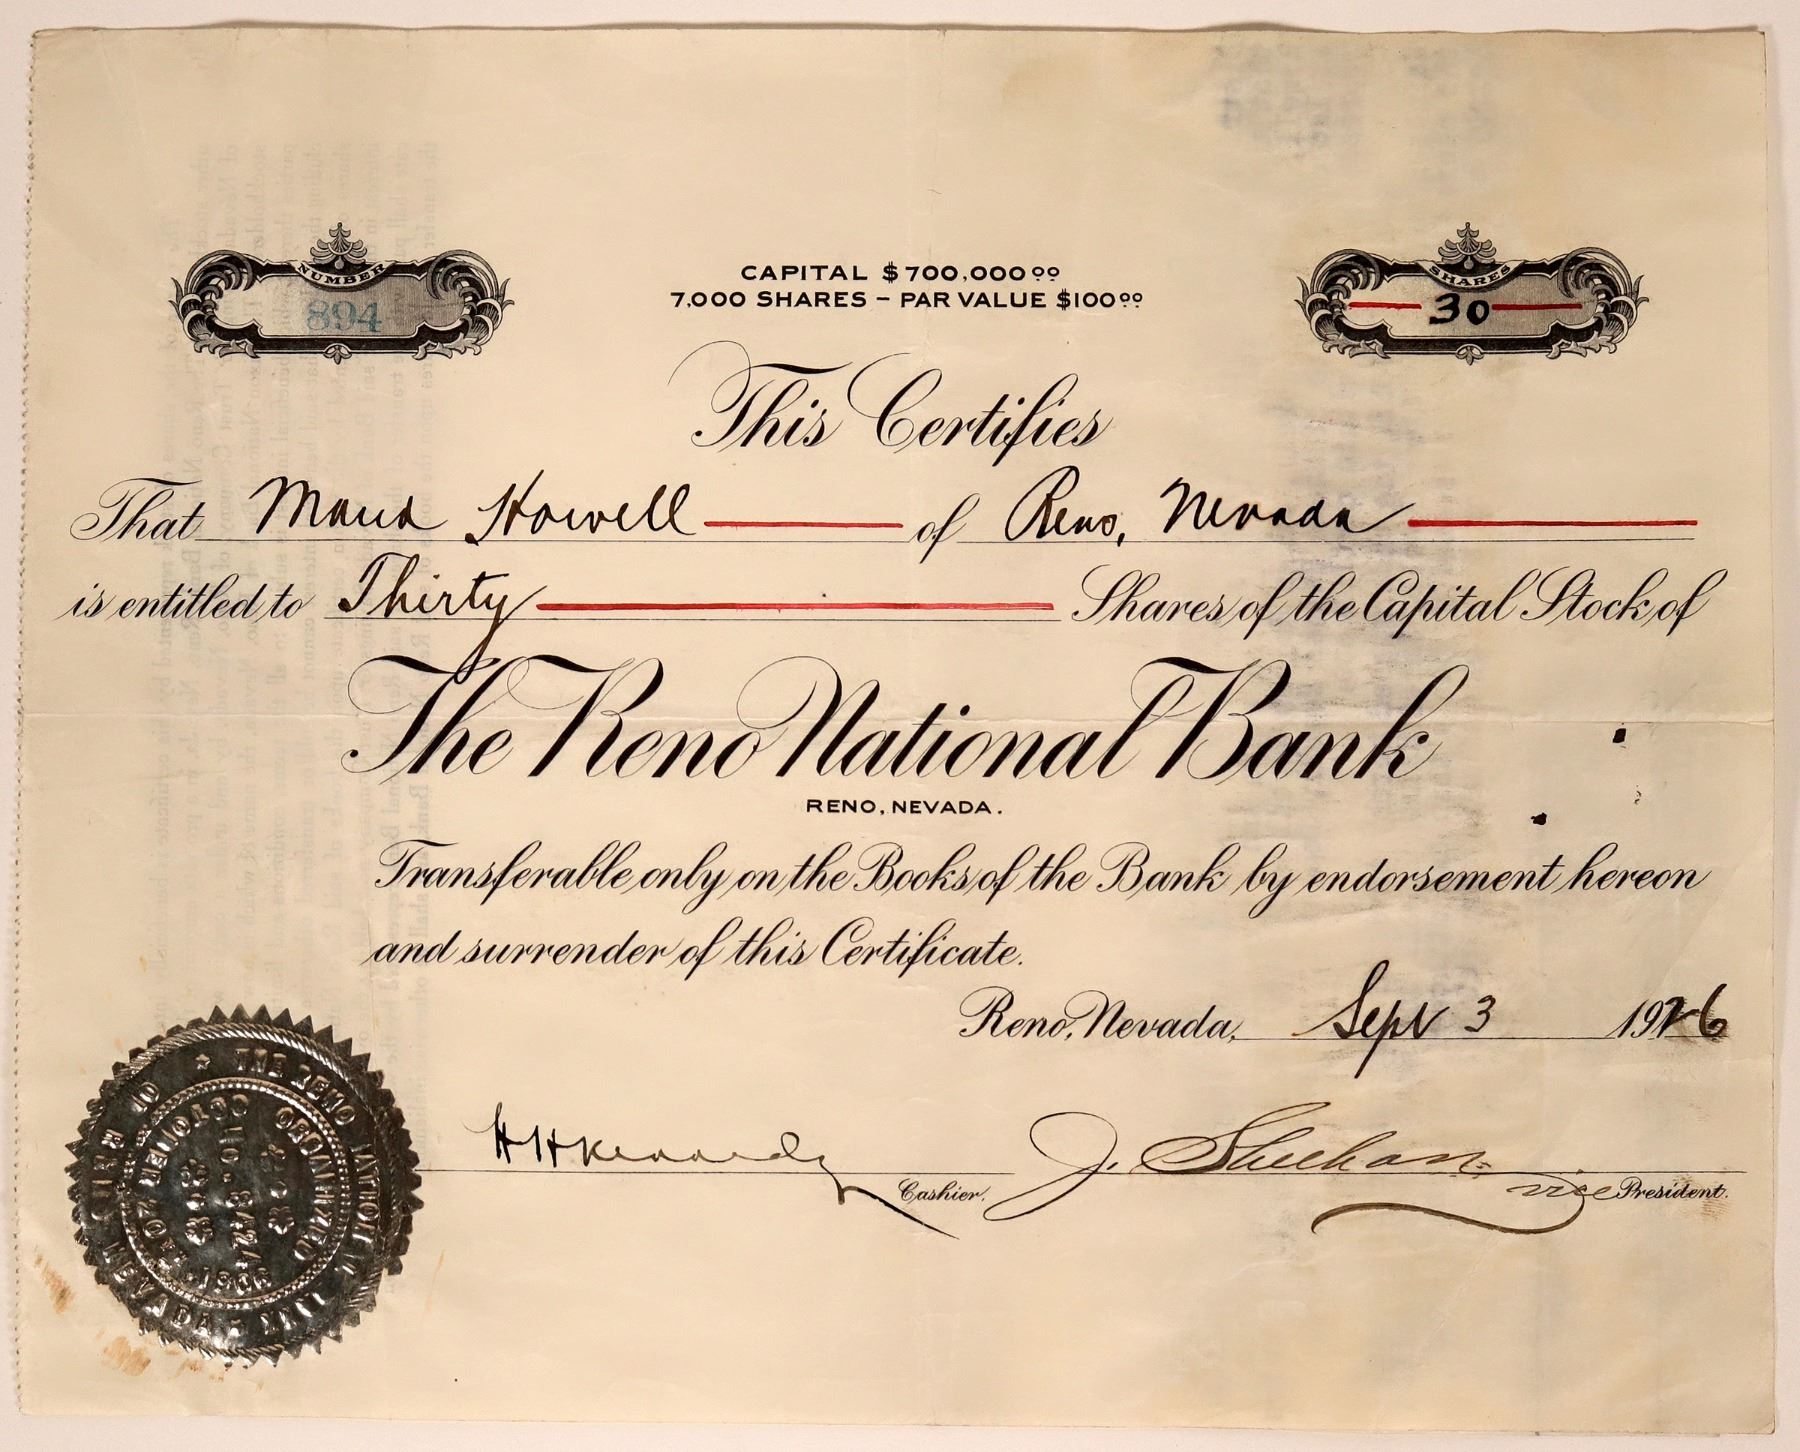 NUMBER
894
CAPITAL $700,000.00
7,000 SHARES – PAR VALUE $100.00
SHARES
30
This Certifies
That Maud Howell of Reno, Nevada
is entitled to Thirty Shares of the Capital Stock of
The Reno National Bank
RENO, NEVADA.
Transferable only on the Books of the Bank by endorsement hereon
and surrender of this Certificate.
Reno, Nevada, Sept 3 1926
H H Kennedy
Cashier.
J. Sheehan
Vice President.
THE RENO NATIONAL BANK OF RENO NEVADA
ORGANIZED OCTOBER 20TH 1906
NO. 8424